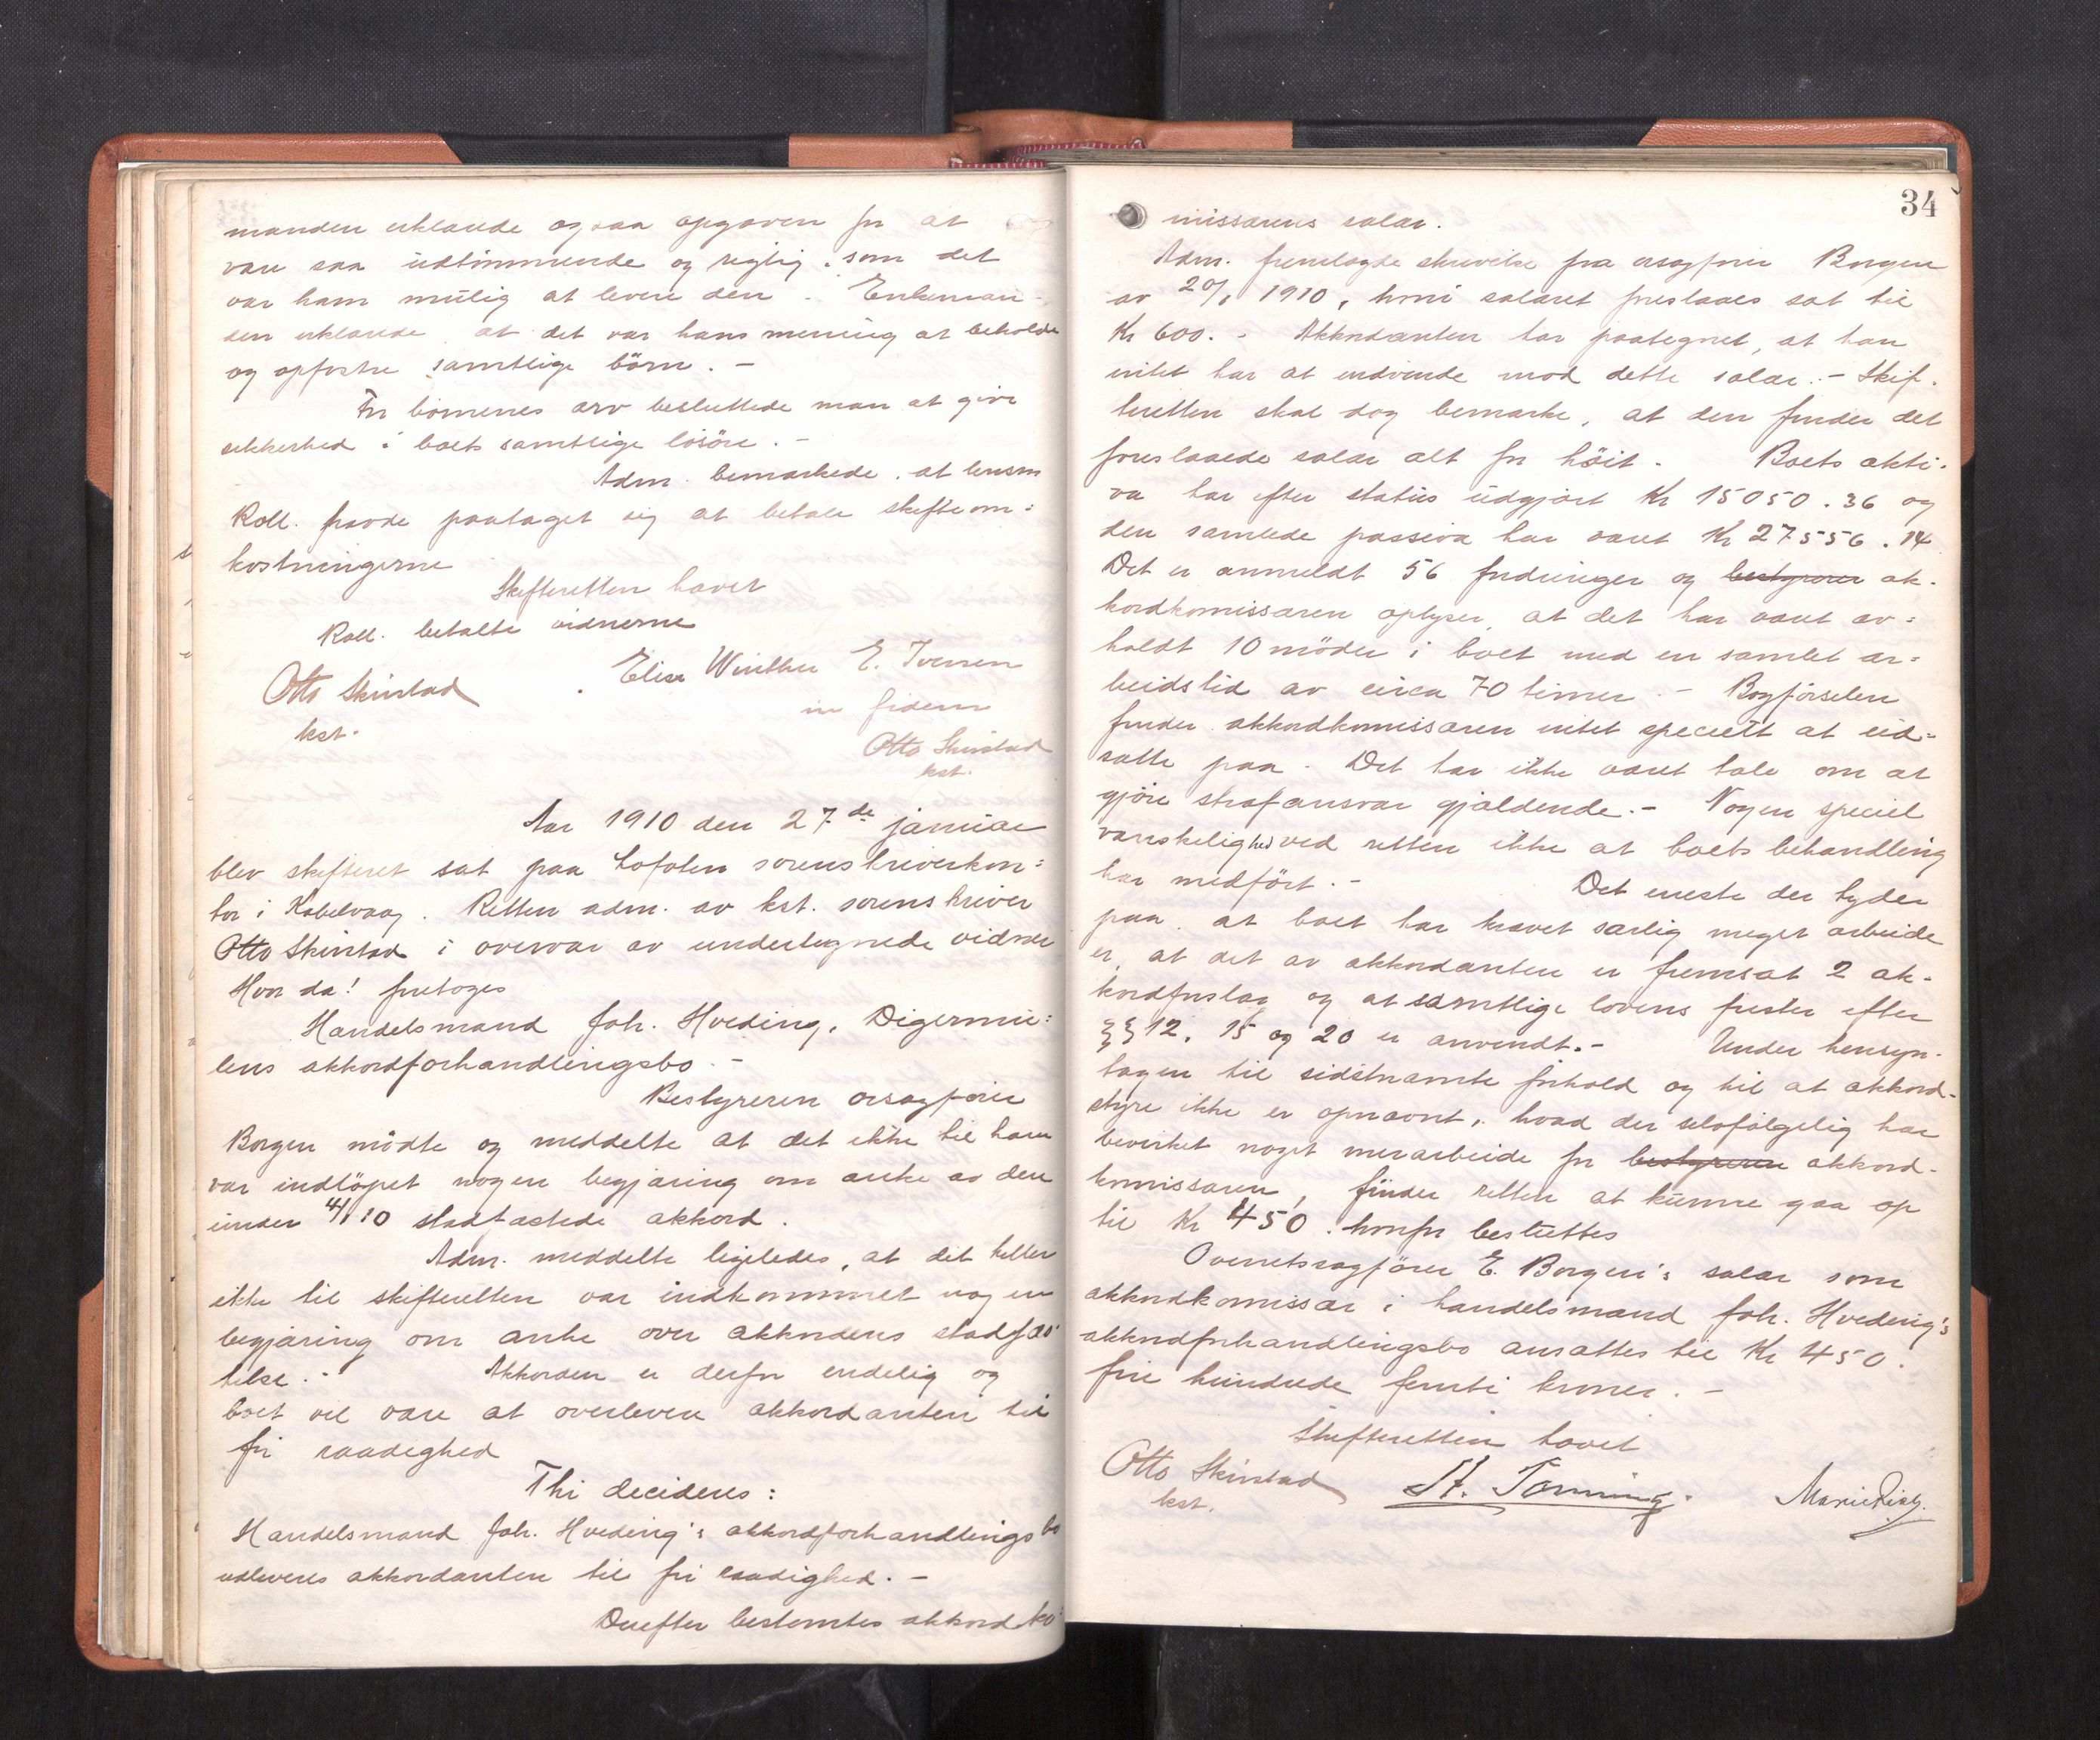 manden erklærede ogsaa opgaven for at
være saa udtømmende og rigtig, som det
var ham mulig at levere den. Enkeman-
den erklærede at det var hans mening at beholde
og opfostre samtlige børn. -
For børnenes arv besluttede man at give
sikkerhed i boets samtlige løsøre. -
Adm. bemærkede, at lensm
Koll. havde paataget sig at betale skifteom=
kostningerne
Skifteretten hævet
Koll. betalte vidnerne
Otto Skirstad
kst.
Elise Winther E. Iversen
in fidem
Otto Skirstad
kst.
Aar 1910 den 27.de januar
blev skifteret sat paa Lofoten sorenskriverkon=
tor i Kabelvaag. Retten adm. av kst. sorenskriver
Otto Skirstad i overvær av undertegnede vidner
Hvor da! foretoges
Handelsmand Joh. Hveding, Digermu=
lens akkordforhandlingsbo. -
Bestyreren orsagfører
Borgen mødte og meddelte at det ikke til ham
var indløpet nogen begjæring om anke av den
under 4/1 10 stadfæstede akkord.
Adm. meddelte ligeledes, at det heller
ikke til skifteretten var indkommet nogen
begjæring om anke over akkordens stadfæs-
telse. - Akkorden er derfor endelig og
boet vil være at overlevere akkordanten til
fri raadighed
Thi decideres:
Handelsmand Joh. Hveding's akkordforhandlingsbo
utleveres akkordanten til fri raadighed. -
Derefter bestemtes akkordko=
34
missærens salær.
Adm. fremlagde skrivelse fra orsagfører Borgen
av 20/1 1910, hvori salæret foreslaaes sat til
Kr 600. - Akkordanten har paategnet, at han
intet har at indvende mod dette salær. - Skif-
teretten skal dog bemærke, at den finder det
foreslaaede salær alt for høit. Boets akti-
va har efter status udgjort Kr 15050.36 og
den samlede passiva har været Kr 27556.14
Det er anmeldt 56 fordringer og bestyreren ak-
kordkomissæren oplyser, at det har været av=
holdt 10 møder i boet med en samlet ar=
beidstid av circa 70 timer. - Bogførselen
finder akkordkomissæren intet specielt at ud=
sætte paa. Det har ikke været tale om at
gjøre strafansvar gjældende. - Nogen speciel
vanskelighed ved retten ikke at boets behandling
har medført. - Det eneste der tyder
paa, at boet har krævet særlig meget arbeide
er, at det av akkordanten er fremsat 2 ak-
kordforslag og at samtlige lovens frister efter
§§ 12, 15 og 20 er anvendt. - Under hensyn-
tagen til sidstnævnte forhold og til at akkord-
styre ikke er opnævnt, hvad der selvfølgelig har
bevirket noget merarbeide for bestyreren akkord-
komissæren, finder retten at kunne gaa op
til Kr 450. hvorfor besluttes
Overretssagfører E. Borgen's salær som
akkordkomissær i handelsmand Joh. Hveding's
akkordforhandlingsbo ansættes til Kr 450.
fire hundrede femti kroner. -
Skifteretten hævet
Otto Skirstad
kst.
H. Tønning.
Marie Rist.